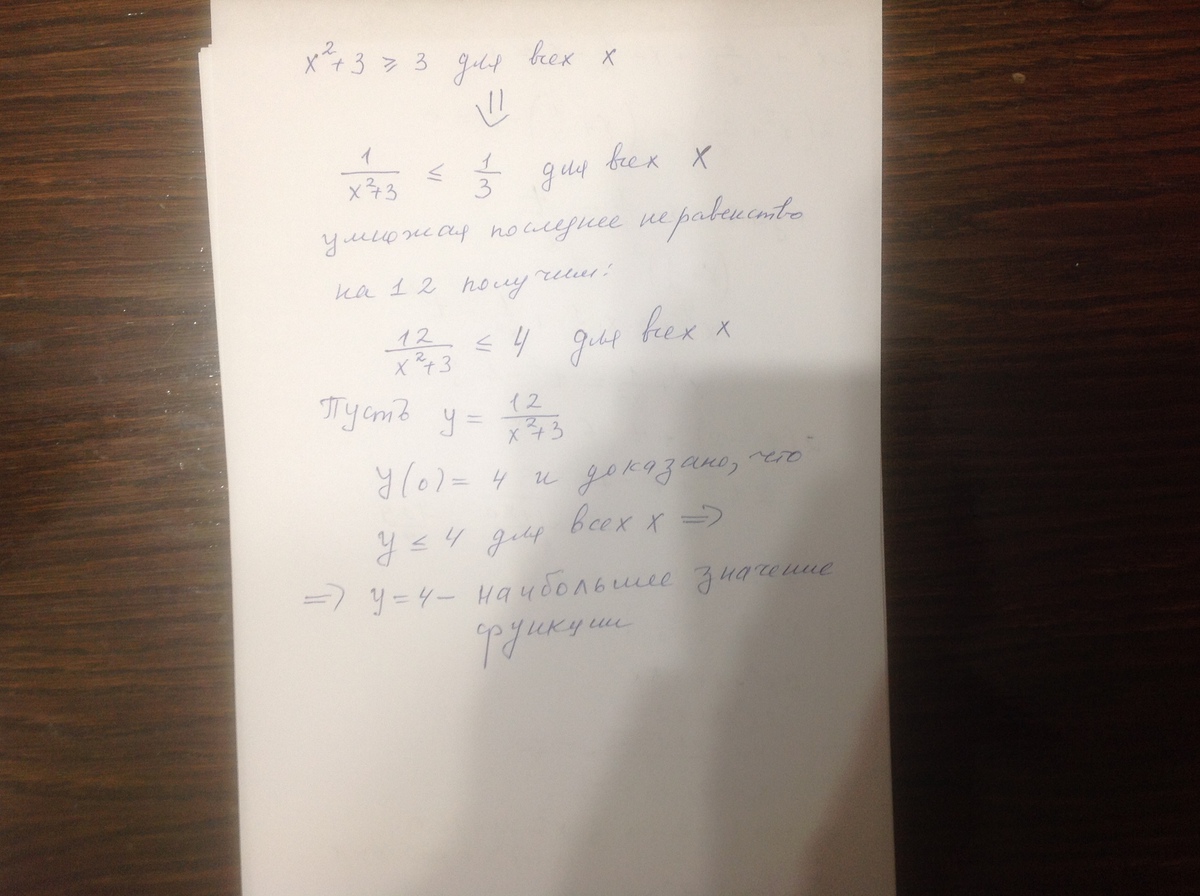 x²+3 ≥ 3 для всех x
⇓
1/(x²+3) ≤ 1/3 для всех x
умножая последнее неравенство
на 12 получим:
12/(x²+3) ≤ 4 для всех x
Пусть y = 12/(x²+3)
y(0) = 4 и доказано, что
y ≤ 4 для всех x =>
=> y=4 – наибольшее значение
функции